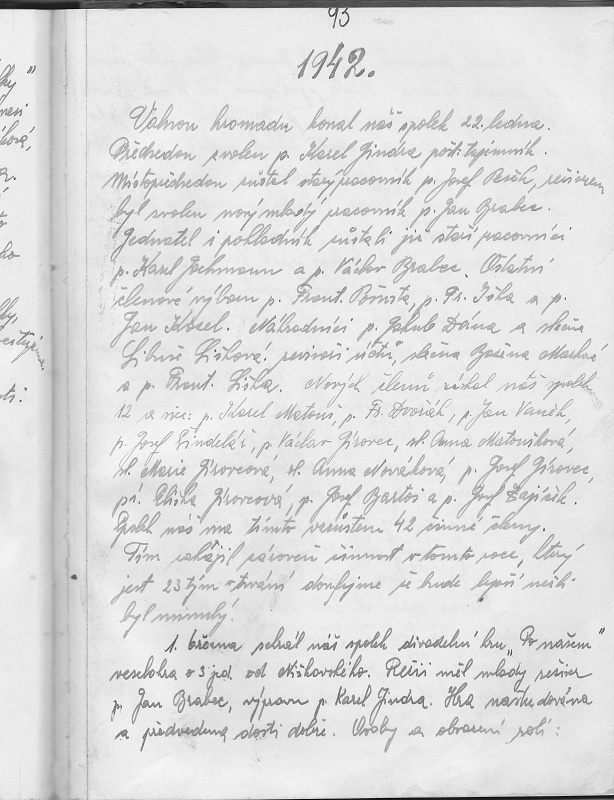 93
1942.
Valnou hromadu konal náš spolek 22. ledna.
Předsedou zvolen p. Karel Jindra pošt. tajemník.
Místopředsedou zůstal starý pracovník p. Josef Peřch, režisérem
byl zvolen nový mladý pracovník p. Jan Brabec.
Jednatel i pokladník zůstali již staří pracovníci
p. Karel Jochmann a p. Václav Brabec. Ostatní
členové výboru p. Frant. p. Fr. Iška a p.
Jan Kozel. Náhradníci p. Jakub Dána a slečna
Libuše Lišková. revisoři účtů, slečna Božena
a p. Frant. Liška. Nových členů získal náš spolek
12 a sice: p. Karel Matouš, p. Fr. Dvořák, p. Jan Vaněk,
p. Josef Šindelář, p. Václav Gírovec, sl. Anna Matoušková,
sl. Marie Gírovcová, sl. Anna Nováková, p. Josef Gírovec,
pí. Eliška Gírovcová, p. Josef Bartoš a p. Josef Zajíček.
Spolek náš má tímto vzrůstem 42 činné členy.
Tím zahájil zároveň činnost v tomto roce, který
jest 23 tým v trvání doufejme že bude lepší nežli
byl minulý.
1. března sehrál náš spolek divadelní hru „Po našem"
veselohra o 3 jed. od Niškovského. Režii měl mladý režisér
p. Jan Brabec, výpravu p. Karel Jindra. Hra nastudována
a předvedena dosti dobře. Osoby a obsazení rolí: